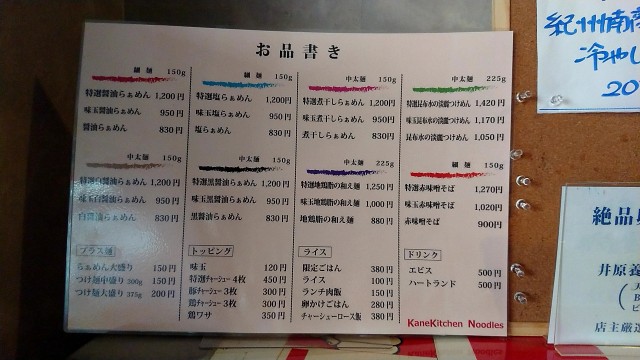 お品書き
細麺 150g
特選醤油らぁめん 1,200円
味玉醤油らぁめん 950円
醤油らぁめん 830円
細麺 150g
特選塩らぁめん 1,200円
味玉塩らぁめん 950円
塩らぁめん 830円
中太麺 150g
特選煮干しらぁめん 1,200円
味玉煮干しらぁめん 950円
煮干しらぁめん 830円
中太麺 225g
特選昆布水の淡麗つけめん 1,420円
味玉昆布水の淡麗つけめん 1,170円
昆布水の淡麗つけめん 1,050円
中太麺 150g
特選白醤油らぁめん 1,200円
味玉白醤油らぁめん 950円
白醤油らぁめん 830円
中太麺 150g
特選黒醤油らぁめん 1,200円
味玉黒醤油らぁめん 950円
黒醤油らぁめん 830円
中太麺 225g
特選地鶏脂の和え麺 1,250円
味玉地鶏脂の和え麺 1,000円
地鶏脂の和え麺 880円
細麺 150g
特選赤味噌そば 1,270円
味玉赤味噌そば 1,020円
赤味噌そば 900円
プラス麺
らぁめん大盛り 150円
つけ麺中盛り 300g 150円
つけ麺大盛り 375g 200円
トッピング
味玉 120円
特選チャーシュー4枚 450円
豚チャーシュー3枚 300円
鶏チャーシュー3枚 300円
鶏ワサ 350円
ライス
限定ごはん 380円
ライス 100円
ランチ肉飯 150円
卵かけごはん 280円
チャーシューロース飯 380円
ドリンク
エビス 500円
ハートランド 500円
KaneKitchen Noodles
紀州南高
冷やし
20
絶品
井原養
店主厳選